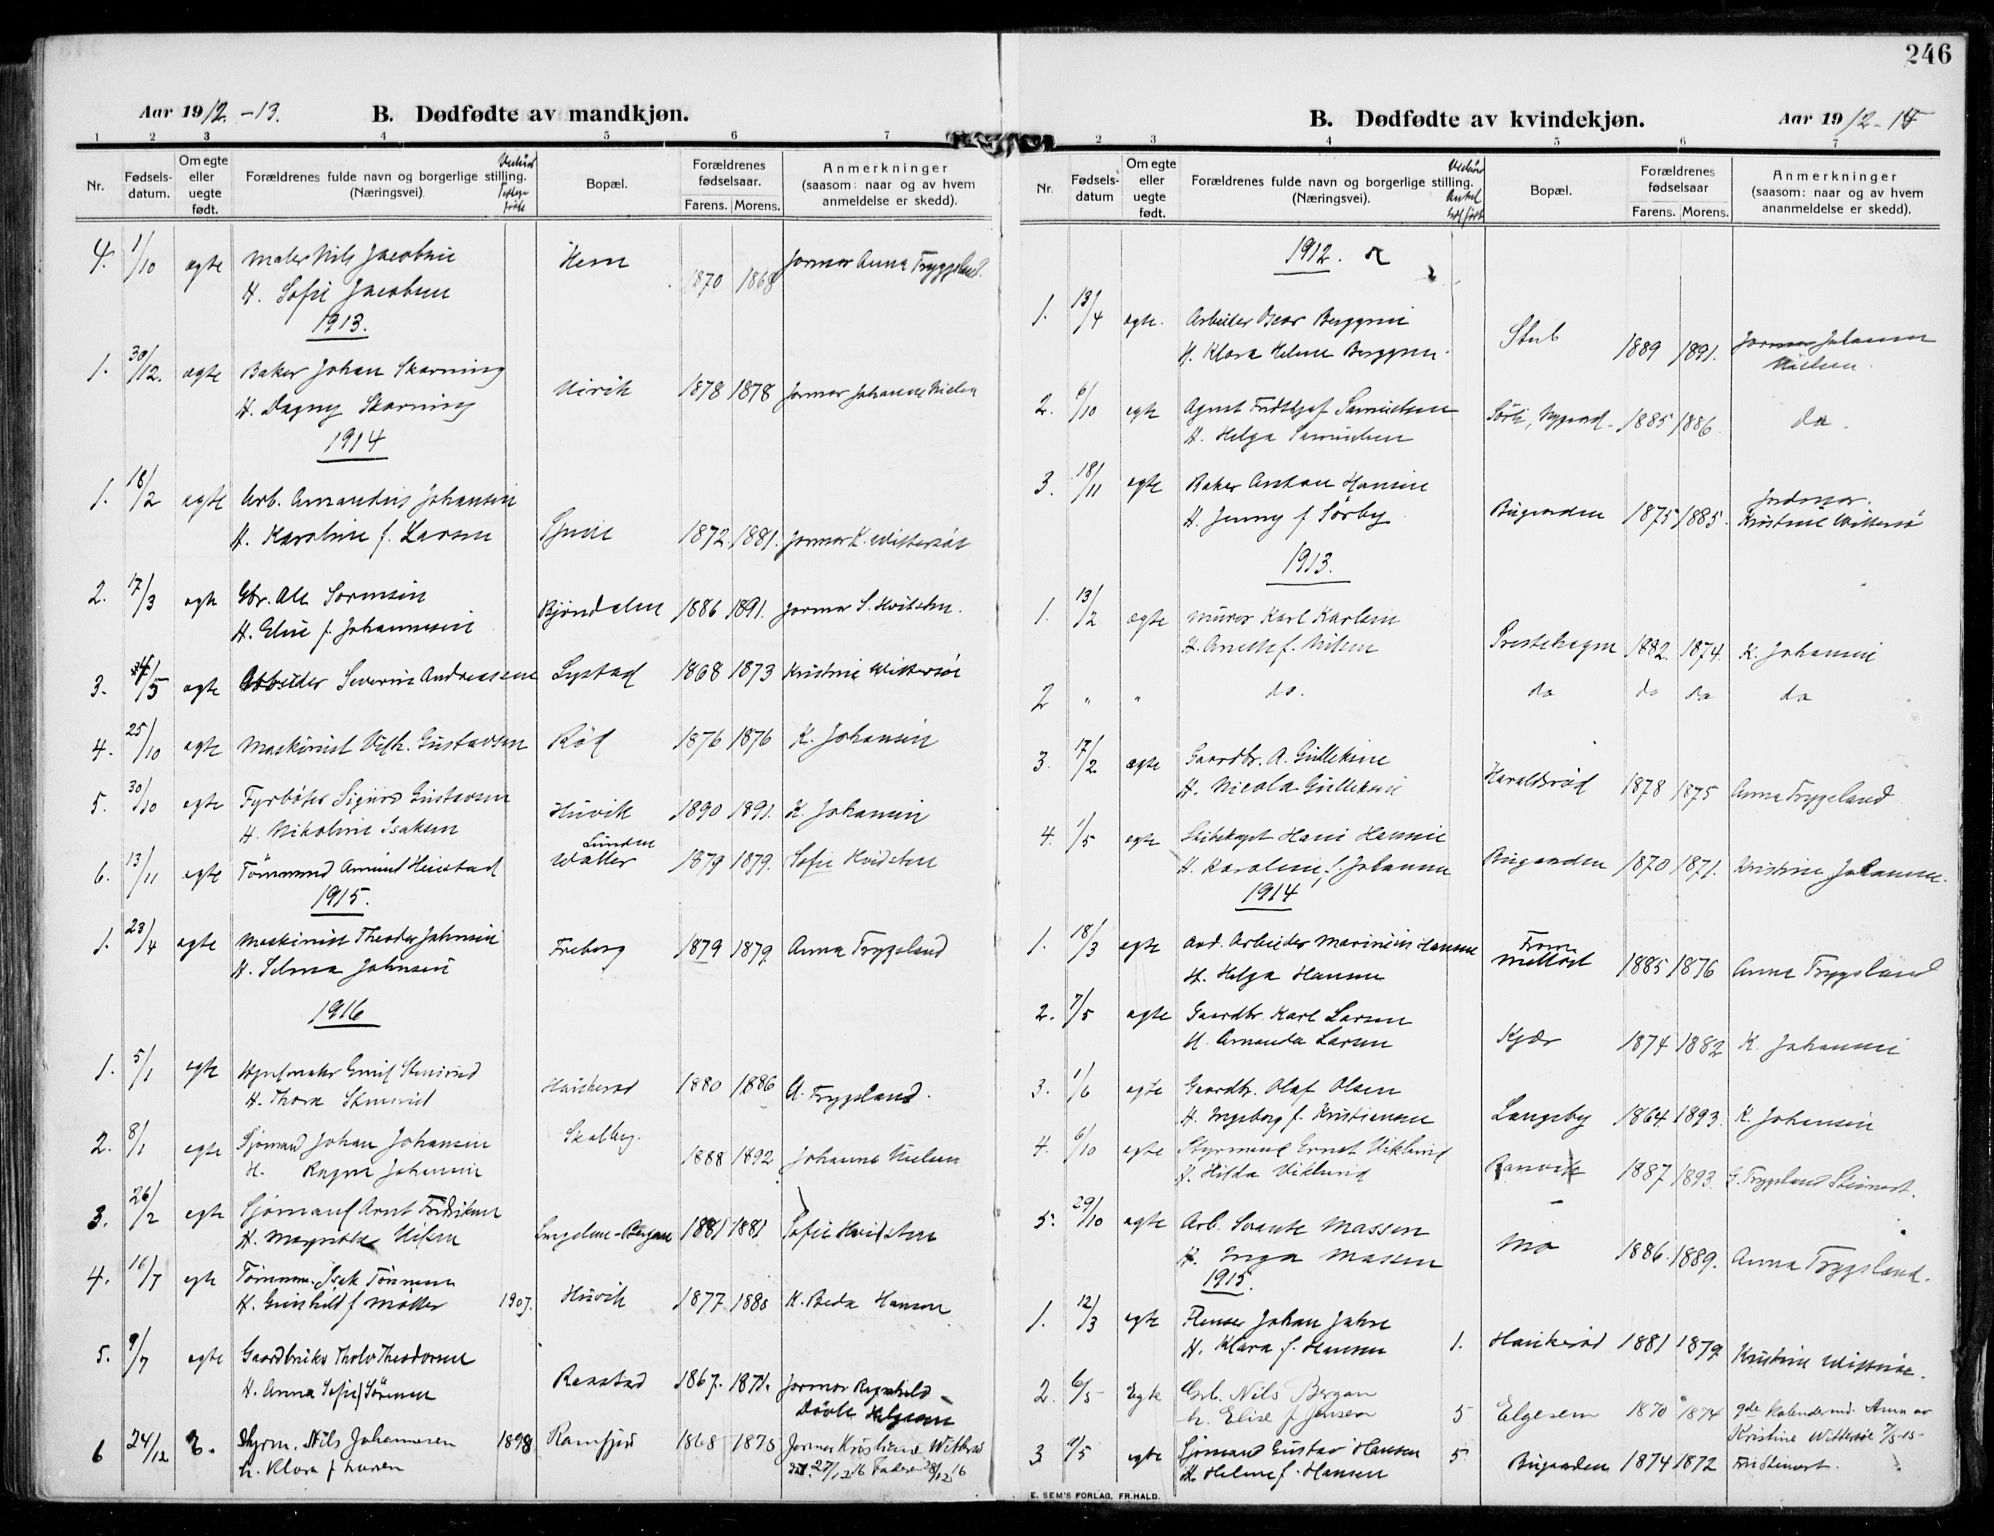 246
Aar 1912-13.
B. Dødfødte av mandkjøn.
1 2 3 4 5 6 7
Nr.
Fødsels-
datum.
Om egte
eller
uegte
født.
Forældrenes fulde navn og borgerlige stilling.
(Næringsvei)
Bopæl.
Forældrenes
fødselsaar.
Farens. Morens.
Anmerkninger
(saasom: naar og av hvem
anmeldelse er skedd).
4. 1/10 egte Maler Nils Jacobsen Hem 1870 1868 Jormor Anna Tryggsland.
H. Sofie Jacobsen
1913.
1. 30/12. ægte Baker Johan Skarning 1878 1878 Jormor Johanne Nielsen
H. Dagny Skarning
1914
1. 18/2 egte Arb. Amandus Johansen
H. Karoline f. Larsen 1872. 1881. Jormor K. Wittersøe
2. 17/3 egte Gbr. Ole Sørensen
H. Elise f. Johannesen Bjøndalen 1886 1891. Jormor S. Hvitsten.
3. /5 egte Arbeider Severin Andreassen Lystad 1868 1873 Kristine Wittersøe
4. 25/10 egte Maskinist Vilh. Gustavsen Rød 1876 1876 K. Johansen
5. 30/10 egte Fyrbøter Sigurd Gustavsen Huvik 1890 1891. K. Johansen
H. Nikoline Isaksen
6. 13/11 egte Tømmermd Amund Heistad Lunden 1879 1879. Sofie Hvidsten
1915.
1. 23/4 egte Maskinist Theodor Johnsen Freberg 1879 1879. Anna Trygsland
H. Selma Johnsen
1916
1. 5/1 egte Emil
H. Thora Haukerød 1880 1886 A. Trygsland.
2. 8/1 egte Sjømand Johan Johansen Skalberg. 1888 1892 Johanne Nielsen
H. Ragna Johansen
3. 26/2 egte Sjømand Arnt Fredriksen
H. Nilsen 1881 1881 Sofie Hvidsten
4. 16/7 egte Tømmerm. Isak Tønnesen
H. Gunhild f Møller 1907. Huvik 1877 1880 K. Beda Hansen
5. 9/7 egte Gaardbruker Tholv Theodorsen
H. Anna Sofie f Sørensen Raastad 1867. 1871. Jormor Ragnhild
Døvle Helgesen
6 24/12 E. Styrm. Nils Johannesen 1898 Ramsfjord 1868 1875 Jormor Kristiane Wittersø
h. Klara f Larsen 27/12 16 Faderen 28/12 16
B. Dødfødte av kvindekjøn.
Aar 1912-15
2 3 4 5 6 7
Nr.
Fødsels-
datum
Om egte
eller
uegte
født.
Forældrenes fulde navn og borgerlige stilling.
(Næringsvei).
Bopæl.
Forældrenes
fødselsaar
Farens. Morens.
Anmerkninger
(saasom: naar og av hvem
ananmeldelse er skedd).
1912.
1. 13/4 egte. Arbeider Oscar Berggren
H. Klara Helene Berggren. Stub 1889 1891. Jormor Johanne
Nielsen.
2. 6/10 egte Agent Fridthjof Samuelsen
H. Helga Samuelsen 1885 1886. do.
3. 18/11 egte Baker Anton Hansen
H. Jenny f Sørby. Bugaarden 1875 1885. Jordmor.
Kristine Wittersø
1913.
1. 13/2 ægte Murer Karl Karlsen
H. Anette f. Nilsen Prestehagen 1882. 1874. K. Johansen
2 " " do. do do do do
3. 17/2. ægte Gaardbr. A. Gulliksen
H. Nicola Gulliksen Haraldsrød 1878 1875 Anna Trygsland
4. 1/5 egte Skibskapt Hans Hansen
H. Karoline f. Johansen Bugaarden 1870 1871. Kristine Johansen.
1914
1. 18/3 egte And. Arbeider Marinius Hansen
H. Helga Hansen 1885 1876 Anna Trygsland
2. 7/5 egte Gaardbr. Karl Larsen
H. Amanda Larsen Kjær 1874 1882 K. Johansen
3. 1/6 egte Gaardbr. Olaf Olsen
H. Ingeborg f. Kristiansen Langeby 1864 1893. K. Johansen
4. 6/10 egte Styrmand Ernst Viklund
H. Hilda Viklund Ranvik 1887 1893. G. Trygsland
5. 29/10 egte Arb. Svante Massen
H. Inga Massen Mo 1886. 1889. Anna Trygsland.
1915.
1. 12/3 egte Flenser Johan Jahre
H. Klara f. Hansen 1. Haukerød 1881 1879. Kristine Wittersøe.
2. 6/5 Egte Grb. Nils Bergan
h. Elise f Jensen 5 Elgesem 1870 1874
Kristine Wittersøe 7/5-15-
3 9/5 egte Sjømand Gustav Hansen
H. Helene f. Hansen 5 Bugaarden 1874 1872
E. SEM'S FORLAG, FR.HALD.